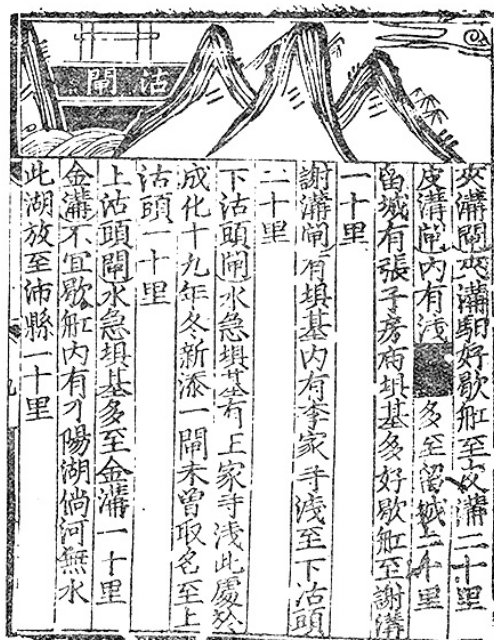 沽閘
夾溝閘夾溝馹好歇舡至皮溝二十里
皮溝閘內有淺多至留城二十里
留城有張子房廟垻基多好歇舡至謝溝
一十里
謝溝閘有垻基內有李家寺淺至下沽頭
二十里
下沽頭閘水急垻基有上家寺淺此處於
成化十九年冬新添一閘未曾取名至上
沽頭一十里
上沽頭閘水急垻基多至金溝一十里
金溝不宜歇舡內有刁陽湖倘河無水
此湖放至沛縣一十里